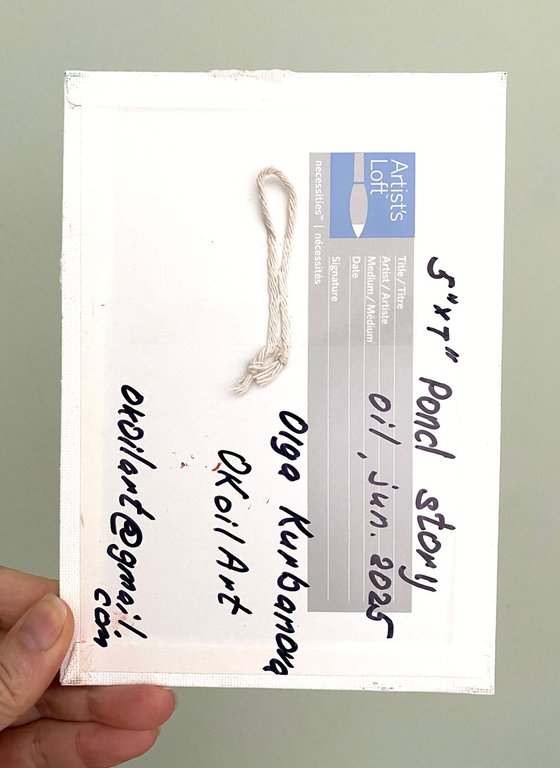 5"x7" Pond story
Artist's
Loft™
necessities™ | nécessités
Title / Titre
Artist / Artiste
Medium / Médium
oil, jun. 2025
Date
Signature
Olga Kurbanova
OKoilArt
okoilart@gmail.
com